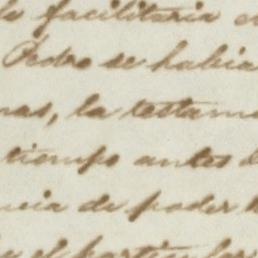 le facilitaria e
Pedro se habia
nas, la testam
tiempo antes d
ncia de poder
el particular